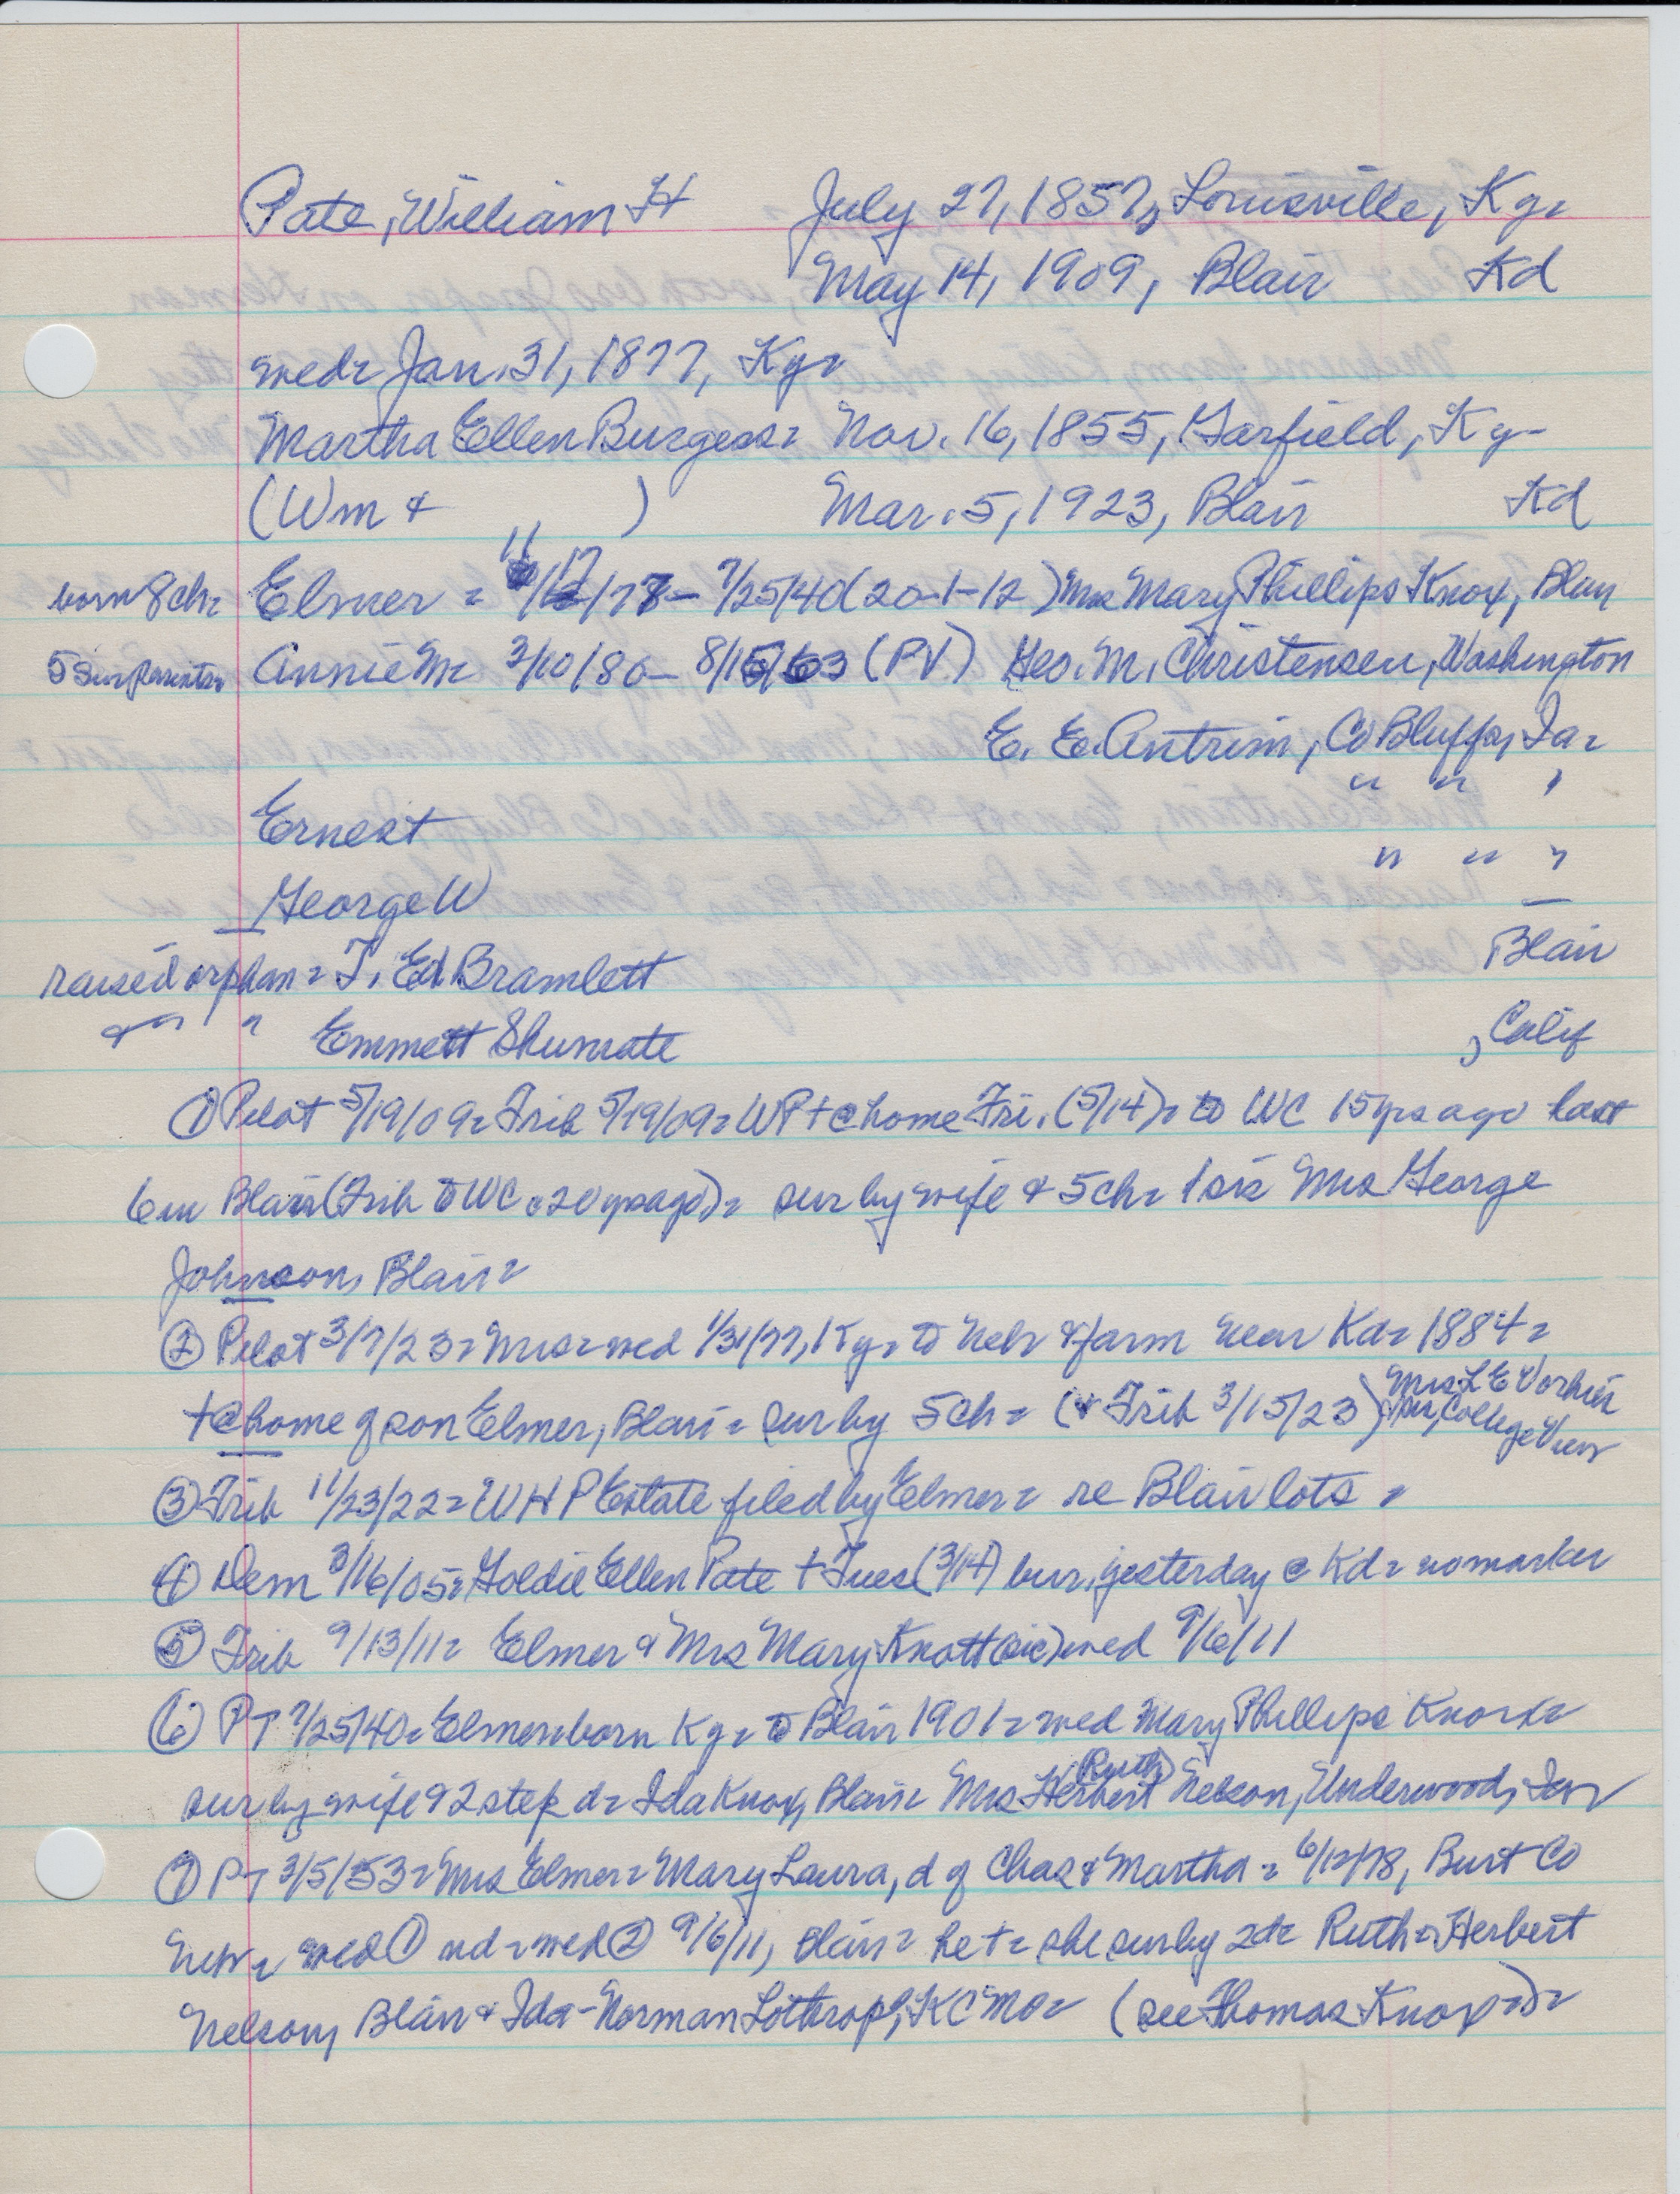 Pate, William H July 27, 1857, Louisville, Ky=
May 14, 1909, Blair Kd
wed= Jan. 31, 1877, Ky=
Martha Ellen Burgess= Nov. 16, 1855, Garfield, Ky-
(Wm & ) Mar. 5, 1923, Blair Kd
born 8 ch= Elmer = 11/17/78- 7/25/40 (20-1-12) Mrs Mary Phillips Knox, Blair
5 sur Annie M= 3/10/80- 8/15/63 (PV) Geo. M. Christensen, Washington
E. E. Antrim, Co Bluffs, Ia=
" " "
Ernest
" " "
George W
raised orphan= T. Ed. Bramlett Blair
& " " Emmett Shumate , Calif
① Pilot 5/19/09= Trib 5/19/09= WP + @ home Fri. (5/14)= to WC 15 yrs ago last
6 in Blair (Trib to WC c 20 yrs ago)= sur by wife & 5 ch= 1 sis Mrs George
Johnson, Blair=
② Pilot 3/7/23= Mrs= wed 1/31/77, Ky= to Neb & farm near Kd= 1884=
+ @ home of son Elmer, Blair= sur by 5 ch= (& Trib 3/15/23) Mrs L E Vorhies
sis, College View
③ Trib 11/23/22= W H P Estate filed by Elmer= re Blair lots=
④ Dem 3/16/05= Goldie Ellen Pate + Tues (3/14) bur. yesterday @ Kd= no marker
⑤ Trib 9/13/11= Elmer & Mrs Mary Knott (sic) wed 9/6/11
⑥ PT 7/25/40= Elmer= born Ky= to Blair 1901= wed Mary Phillips Knox=
sur by wife & 2 step d= Ida Knox, Blair= Mrs Herbert (Ruth) Nelson, Underwood, Ia=
⑦ PT 3/5/53= Mrs Elmer= Mary Laura, d of Chas & Martha= 6/12/78, Burt Co
Neb= wed ① nd= wed ② 9/6/11, Blair= he += she sur by 2 d= Ruth= Herbert
Nelson, Blair & Ida-Norman Lothrop, KC Mo= (see Thomas Knox=)=